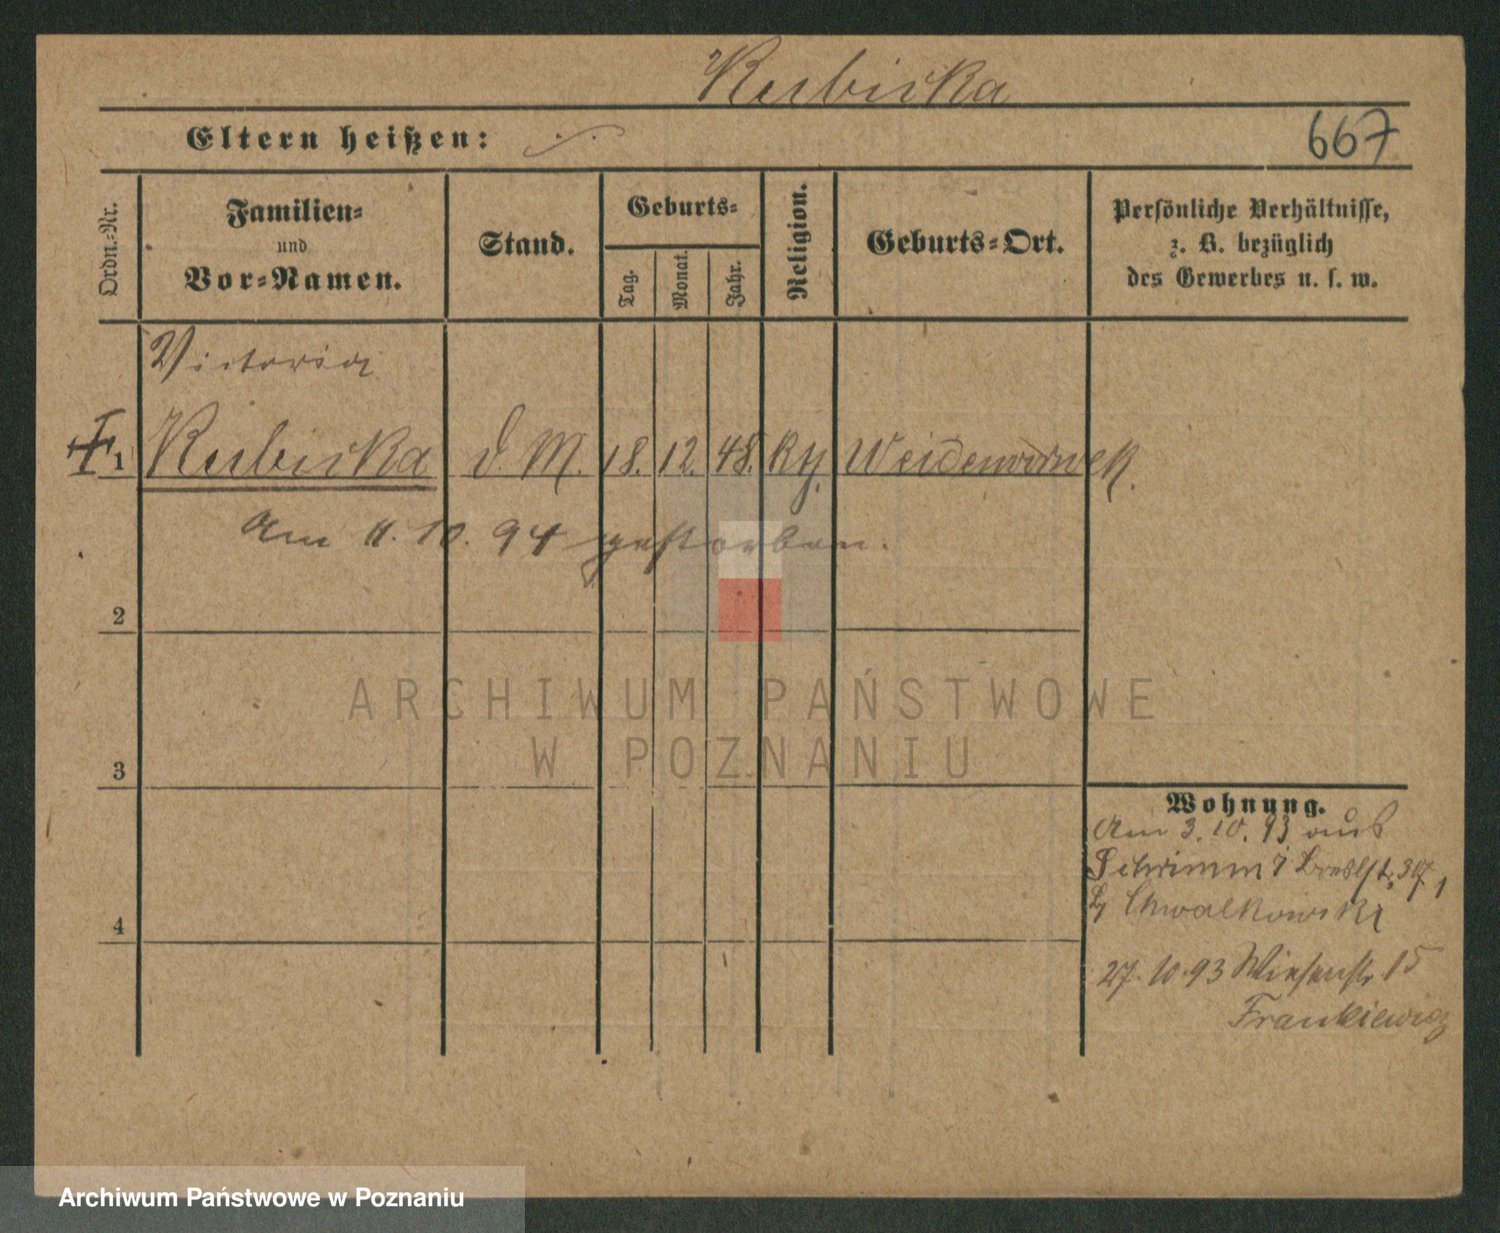 Kubicka
Eltern heißen: ·/·
667
Ordn.-Nr.
Familien-
und
Vor-Namen.
Stand.
Geburts-
Tag.
Monat.
Jahr.
Religion.
Geburts-Ort.
Persönliche Verhältnisse,
z. B. bezüglich
des Gewerbes u. s. w.
Victoria
1 Kubicka d. M. 18. 12. 48. Kth.
Am 11. 10. 94 gestorben.
2
3
4
Wohnung.
Am 3. 10. 93 aus
Schrimm Breslst.
b/ Chwalkowski
27. 10. 93 Wiesenstr. 15
Frankiewicz
ARCHIWUM PAŃSTWOWE
W POZNANIU
Archiwum Państwowe w Poznaniu